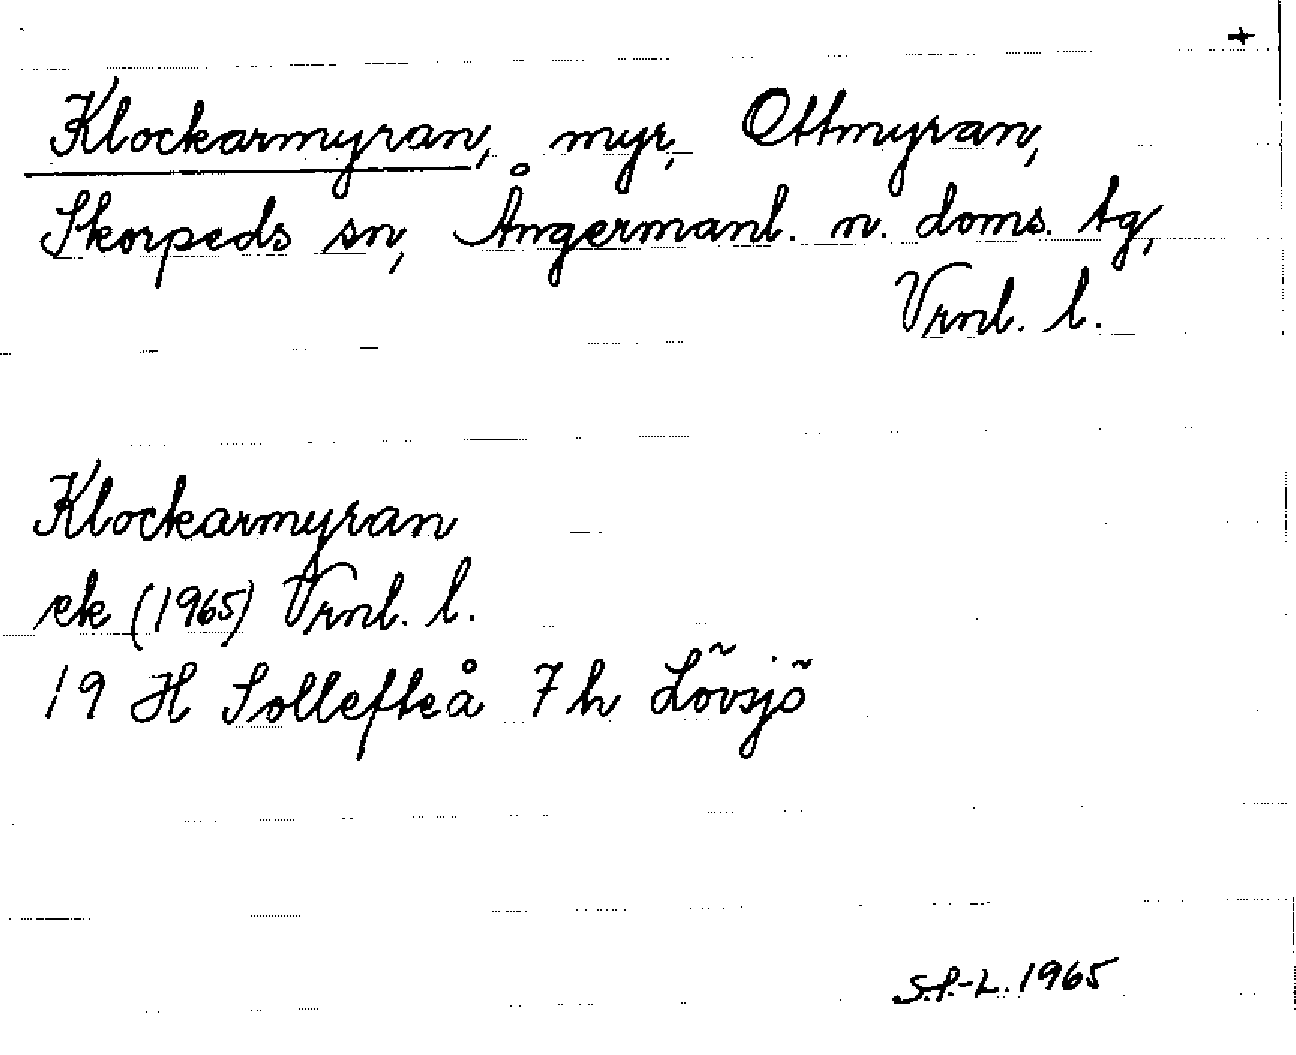 +
Klockarmyran, myr, Ottmyran,
Skorpeds sn, Ångermanl. n. doms. tg,
Vrnl. l.
Klockarmyran
ek (1965) Vrnl. l.
19 H Sollefteå 7 h Lövsjö
S.P.-L. 1965